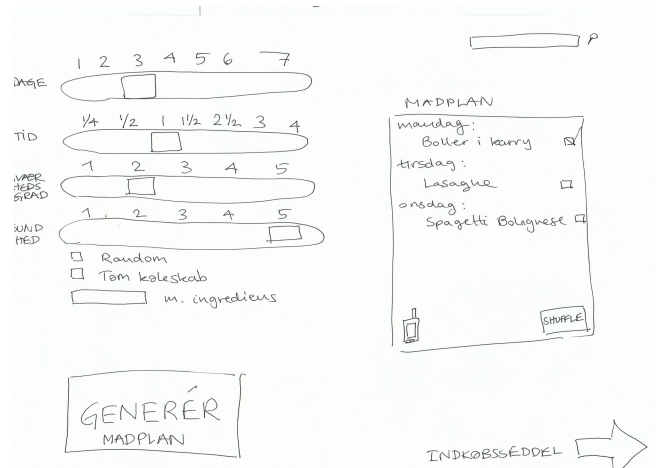 1 2 3 4 5 6 7
DAGE
1/4 1/2 1 1 1/2 2 1/2 3 4
TID
1 2 3 4 5
SVÆR
HEDS
GRAD
1. 2 3 4 5
SUND
HED
Random
Tom køleskab
m. ingrediens
GENERÉR
MADPLAN
P
MADPLAN
mandag:
Boller i karry
tirsdag:
Lasagne
onsdag:
Spagetti Bolognese
SHUFFLE
INDKØBSSEDDEL